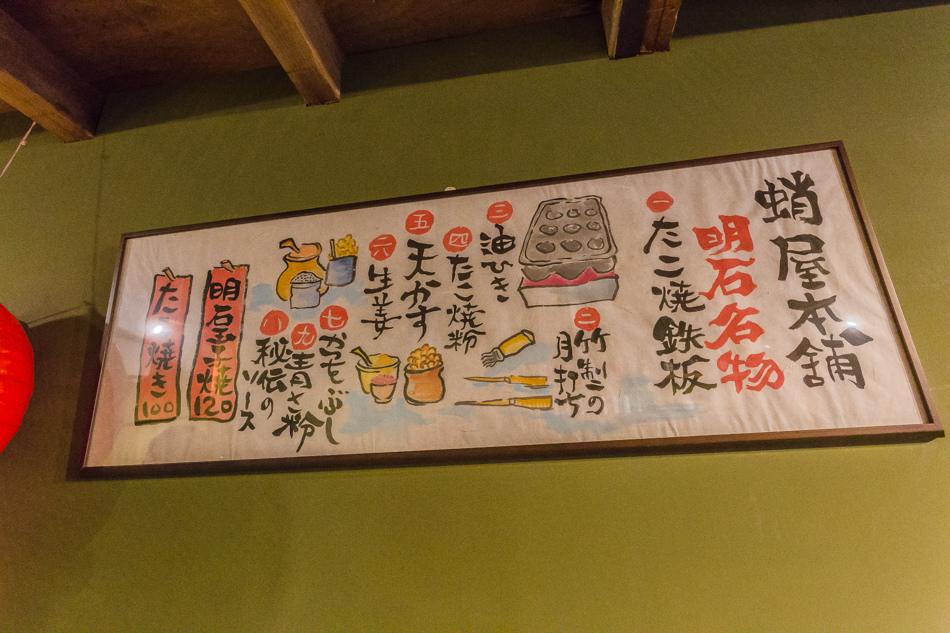 蛸屋本舗
明石名物
一 たこ焼鉄板
二 竹製の
目打ち
三 油ひき
四 たこ焼粉
五 天かす
六 生姜
七 かつをぶし
九 青さ粉
八 秘伝の
ソース
明石玉子焼 120
たこ焼き 100